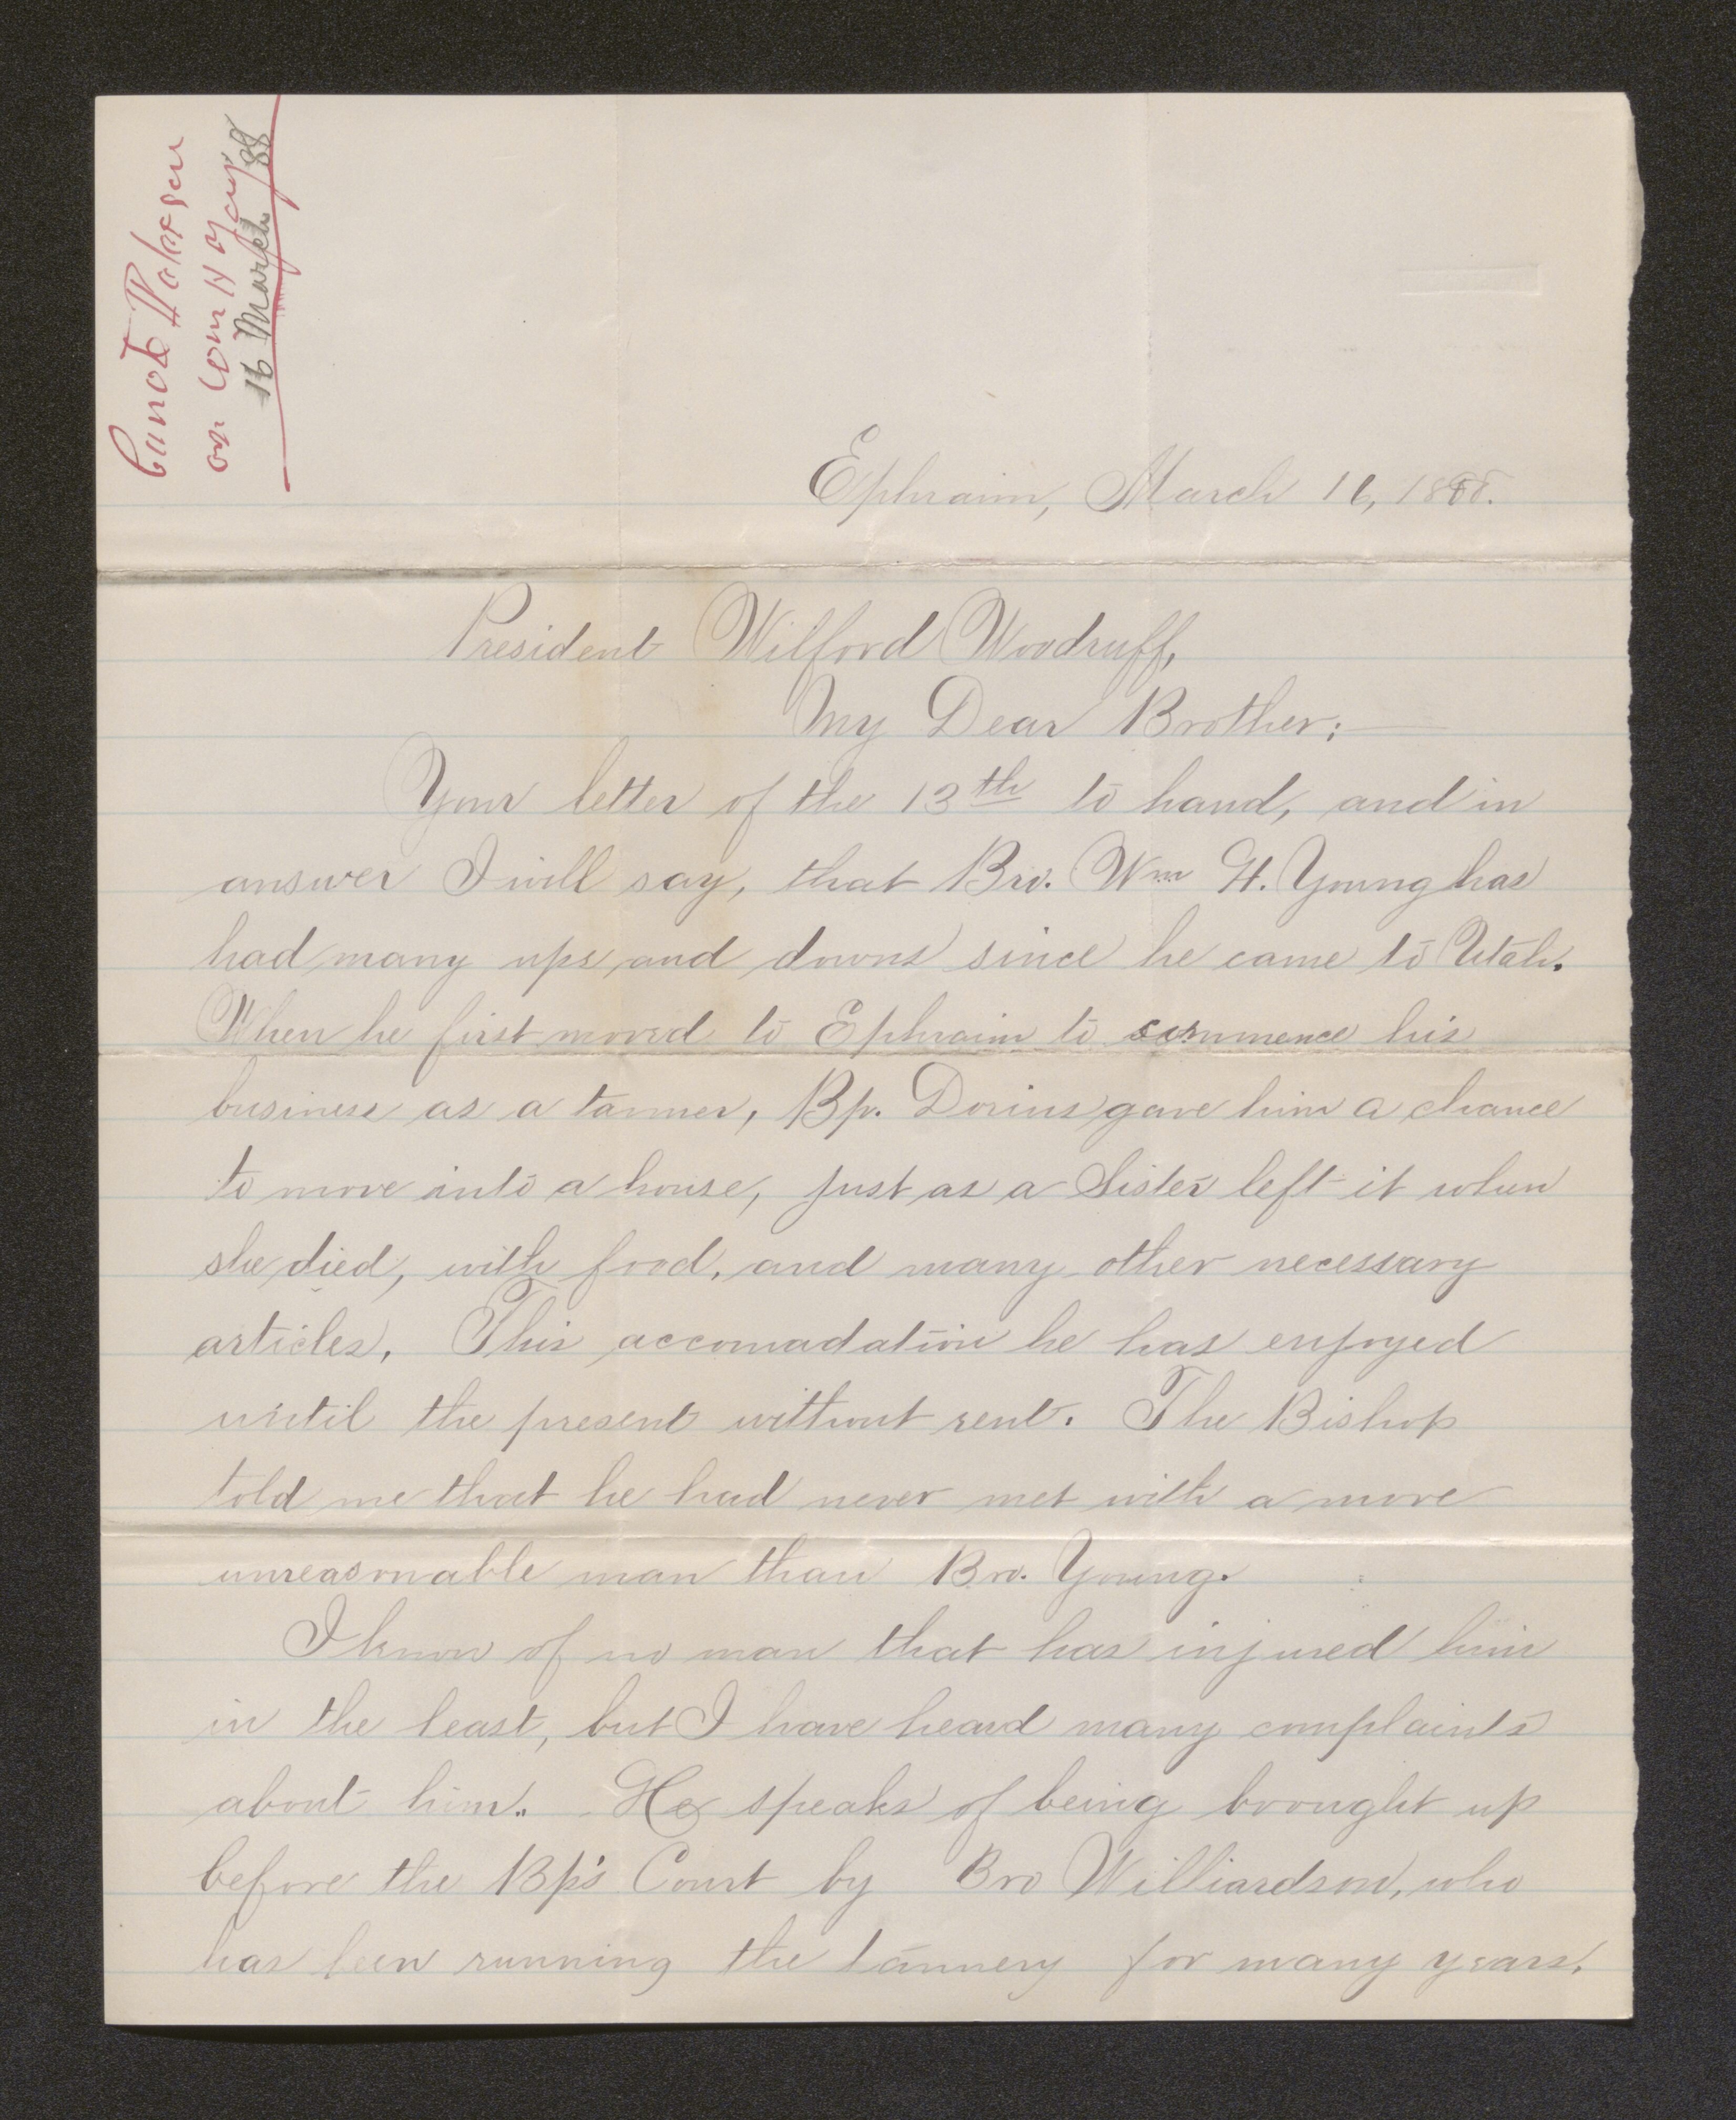 Canute Peterson
on Wm H Young
16 March 88
Ephraim, March 16, 1888.
President Wilford Woodruff,
My Dear Brother;
Your letter of the 13th to hand, and in
answer I will say, that Bro. Wm H. Young has
had many ups and downs since he came to Utah.
When he first moved to Ephraim to commence his
business as a tanner, Bp. Dorius gave him a chance
to move into a house, just as a Sister left it when
she died, with food, and many other necessary
articles. This accomadation he has enjoyed
until the present without rent. The Bishop
told me that he had never met with a more
unreasonable man than Bro. Young.
I know of no man that has injured him
in the least, but I have heard many complaints
about him. He speaks of being brought up
before the Bp's Court by Bro Williardson, who
has been running the tannery for many years.